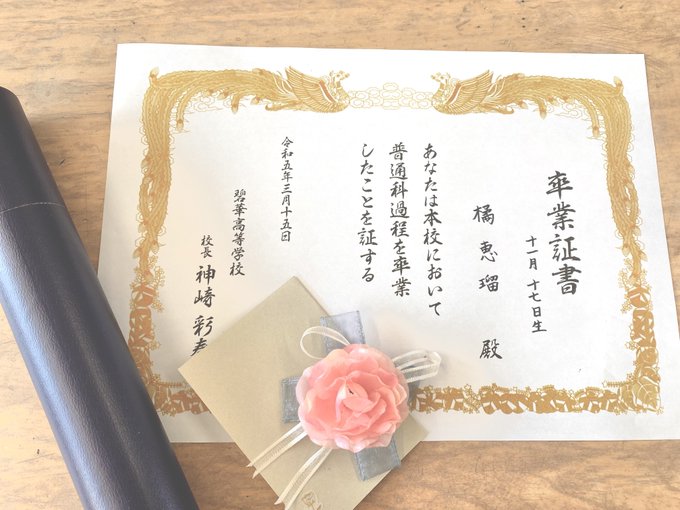 卒業証書
十一月 十七日生
橘 恵瑠 殿
あなたは本校において
普通科過程を卒業
したことを証する
令和五年三月十五日
碧華高等学校
校長 神崎 彩